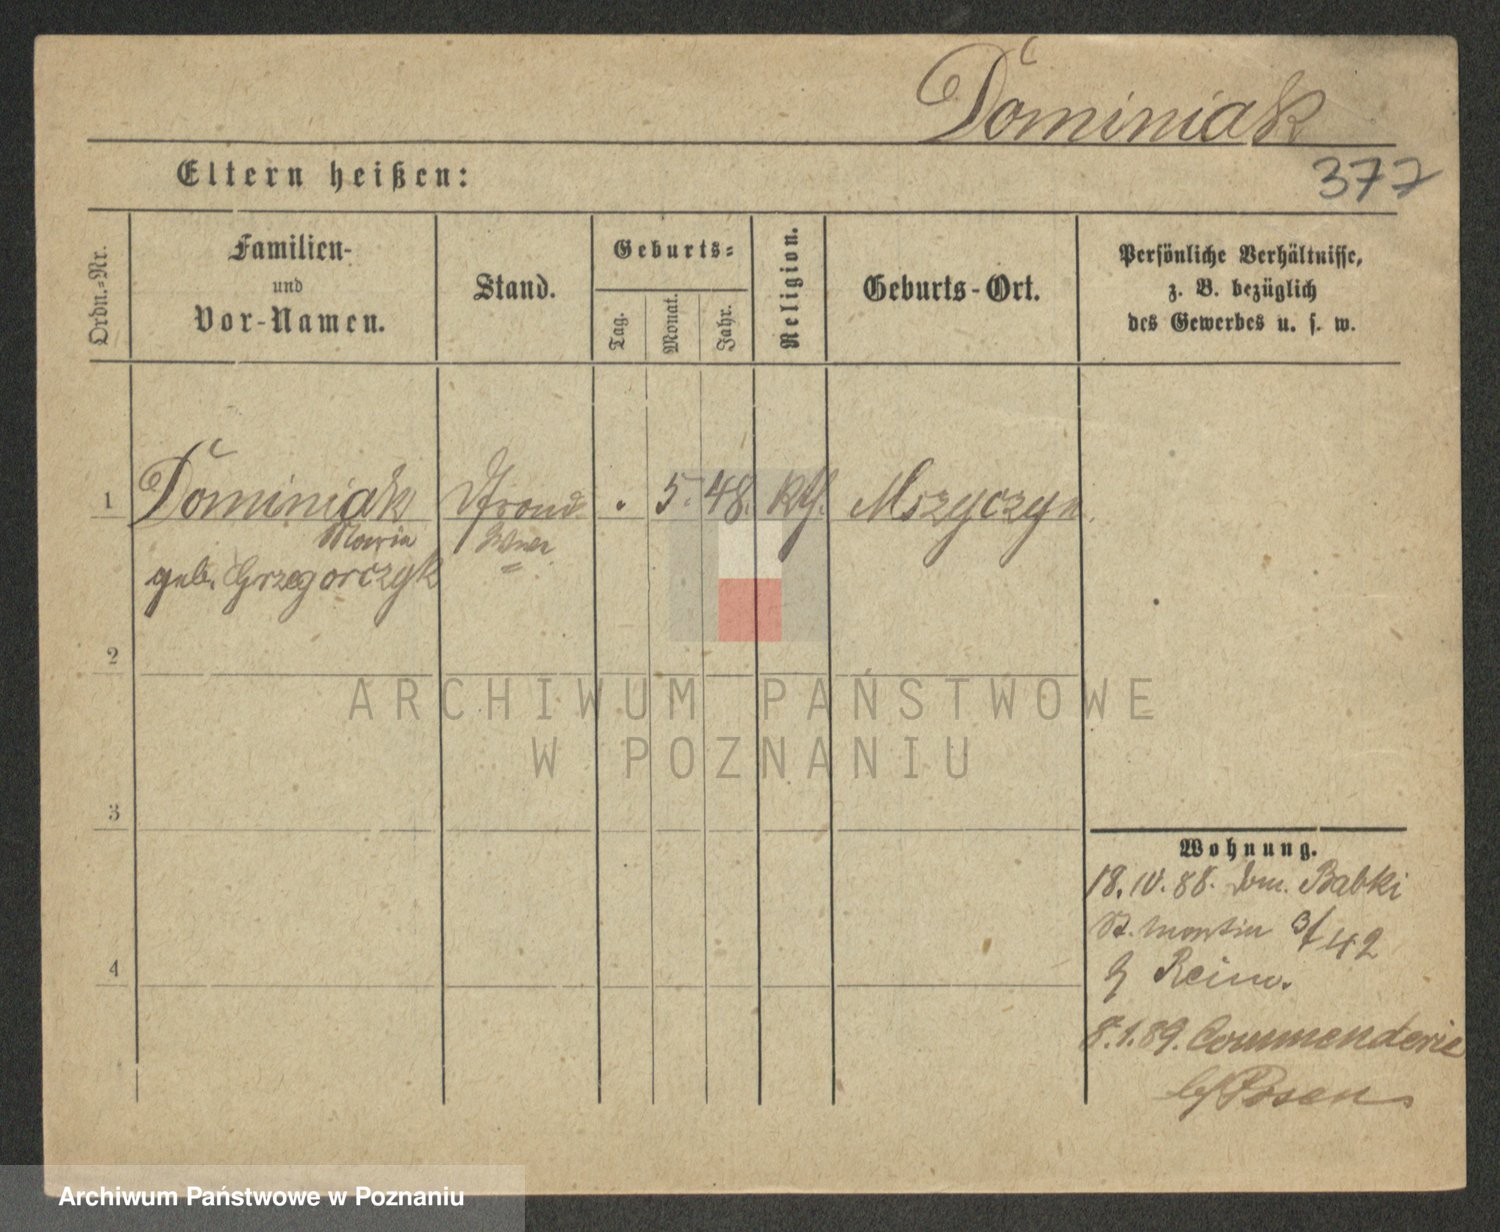 Dominiak
377
Eltern heißen:
Ordn.-Nr.
Familien-
und
Vor-Namen.
Stand.
Geburts-
Tag.
Monat.
Jahr.
Religion.
Geburts-Ort.
Persönliche Verhältnisse,
z. B. bezüglich
des Gewerbes u. s. w.
1
Dominiak
Maria
geb. Grzegorczyk
5. 48. kth. Mszyczyn
2
3
4
Wohnung.
18. IV. 88. Dom. Babki
St. Martin 3/42
b/ Posen
8.1.89. Commenderie
ARCHIWUM PAŃSTWOWE
W POZNANIU
Archiwum Państwowe w Poznaniu